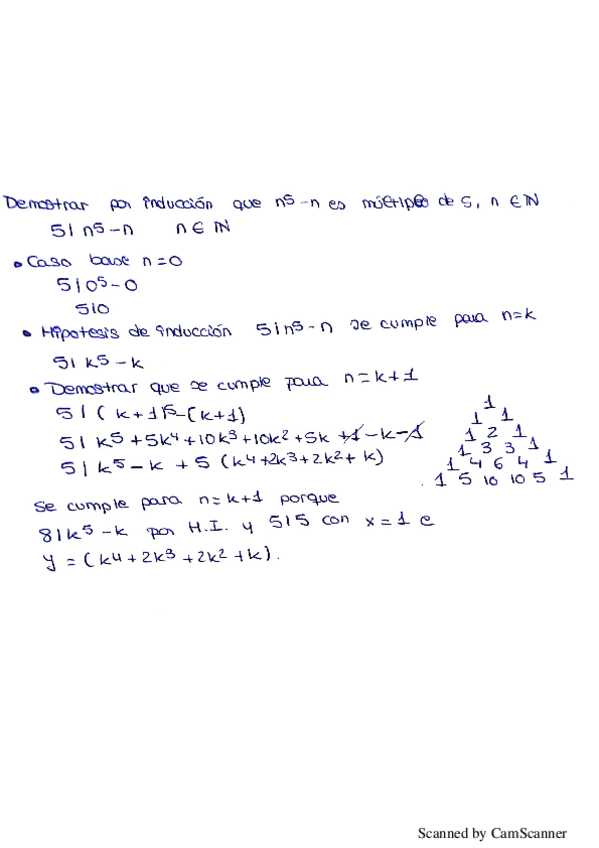 Demostrar por inducción que n⁵-n es múltiplo de 5, n ∈ ℕ
5 | n⁵-n n ∈ ℕ
• Caso base n=0
5 | 0⁵-0
5 | 0
• Hipotesis de inducción 5 | n⁵-n se cumple para n=k
5 | k⁵-k
• Demostrar que se cumple para n=k+1
5 | (k+1)⁵-(k+1)
5 | k⁵+5k⁴+10k³+10k²+5k+1-k-1
5 | k⁵-k+5(k⁴+2k³+2k²+k)
1
1 1
1 2 1
1 3 3 1
1 4 6 4 1
1 5 10 10 5 1
Se cumple para n=k+1 porque
8|k⁵-k por H.I. y 5|5 con x=1 e
y=(k⁴+2k³+2k²+k).
Scanned by CamScanner